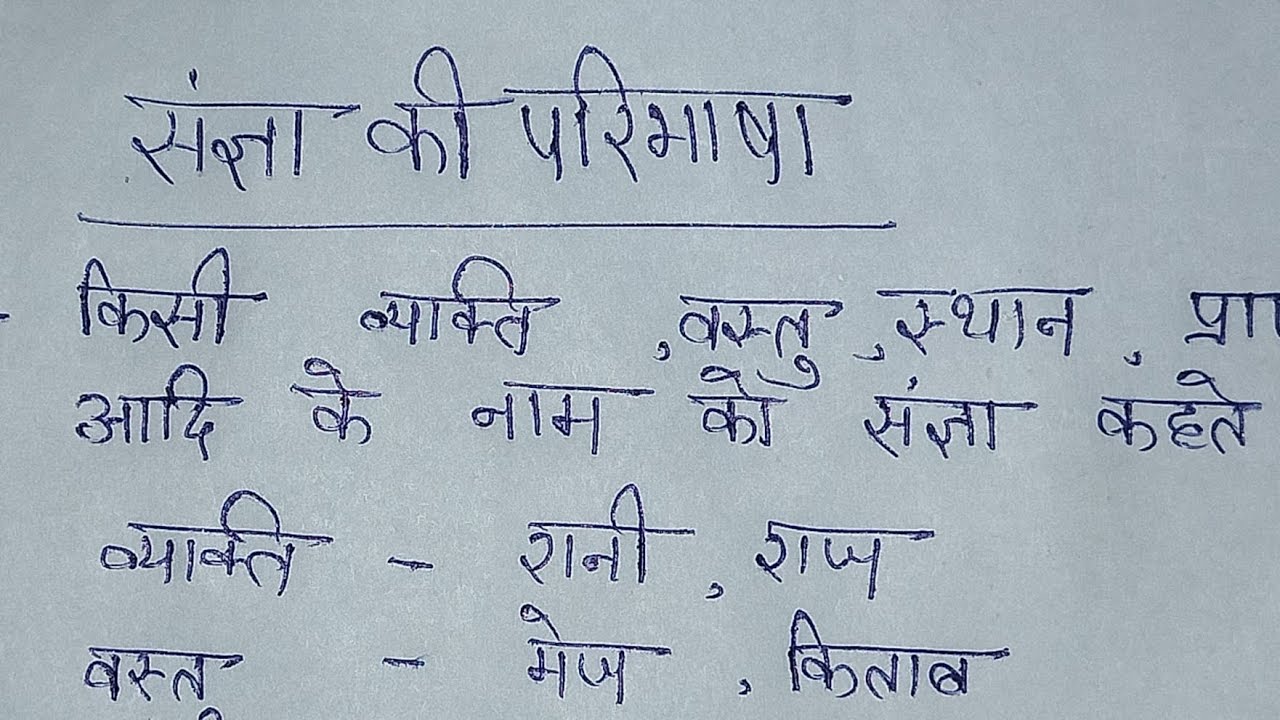 संज्ञा की परिभाषा
किसी व्याक्ति , वस्तु , स्थान , प्रा
आदि के नाम को संज्ञा कहते
व्याक्ति - रानी , राज
वस्तु - मेज , किताब